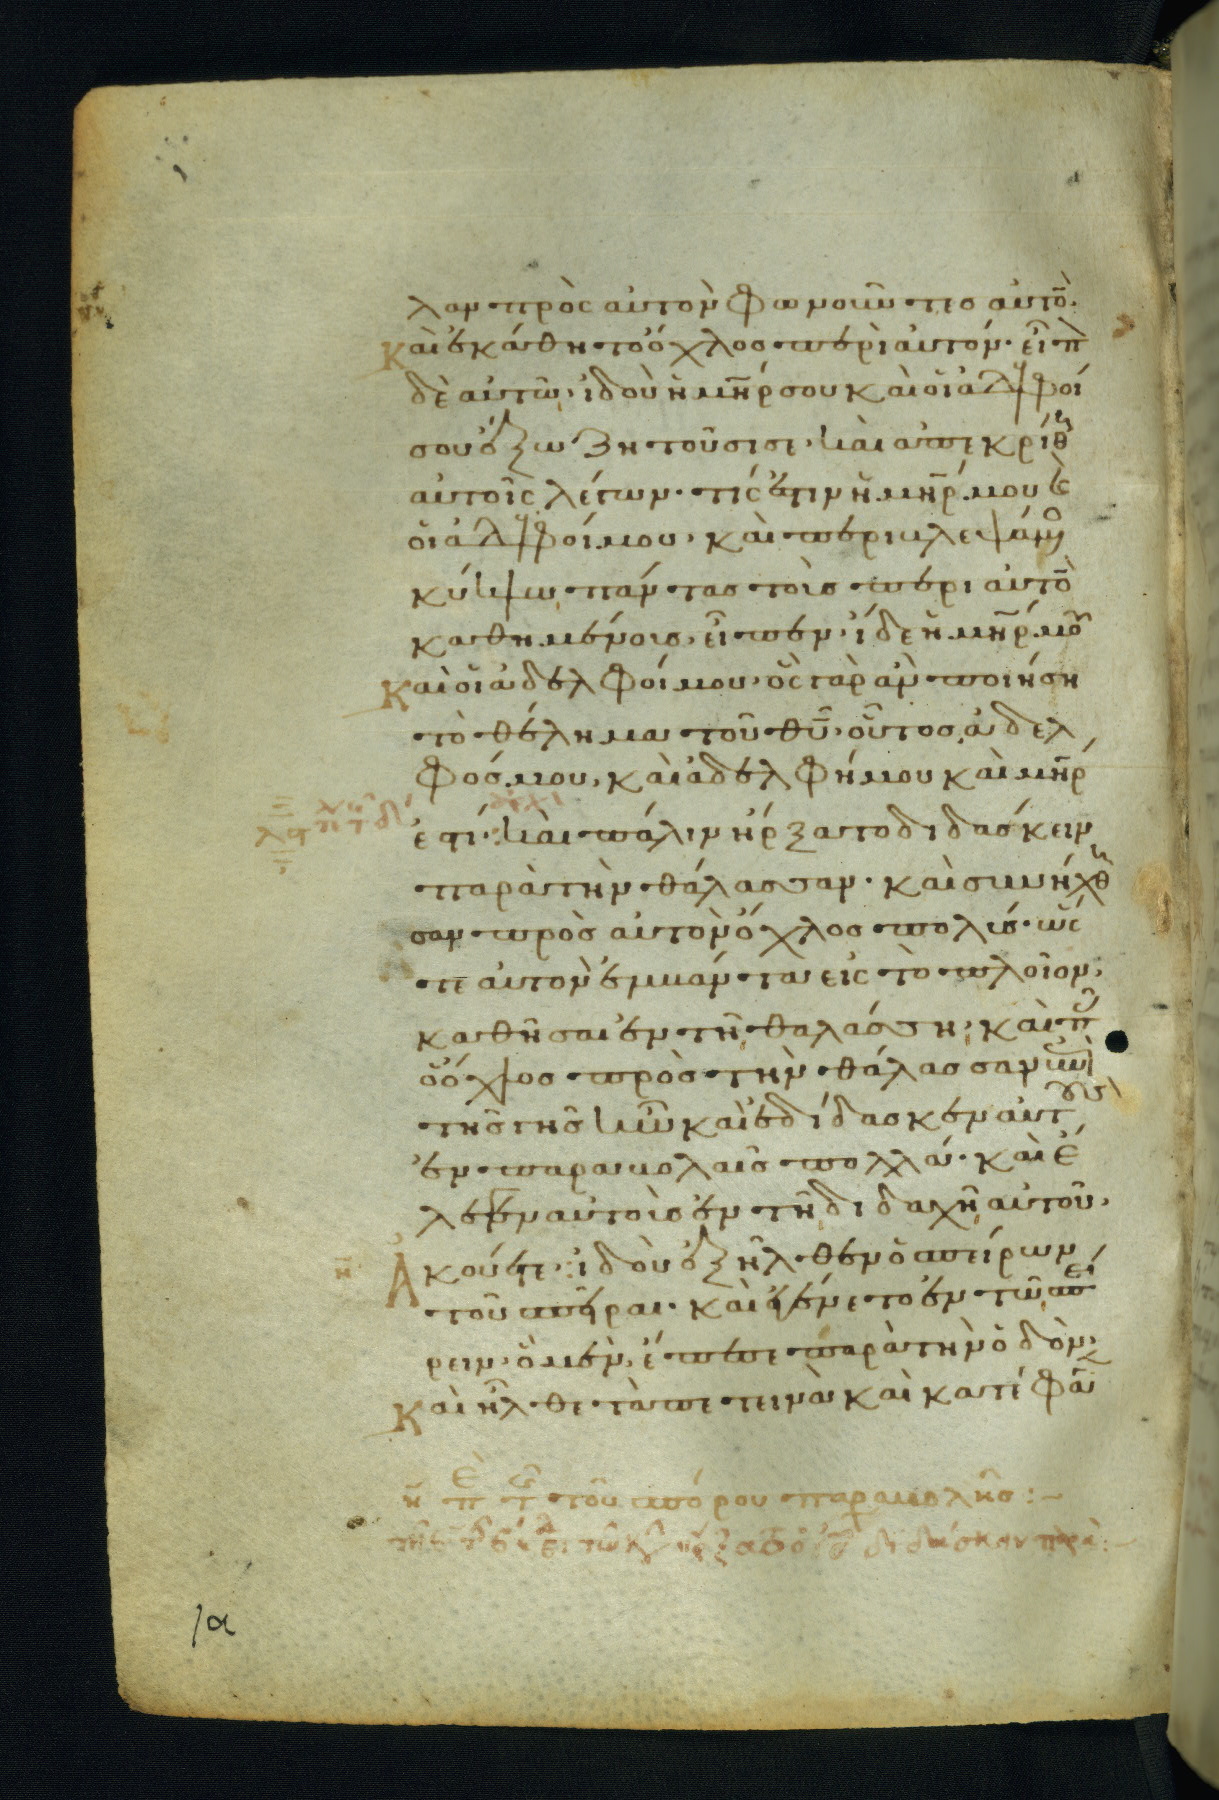 λαν πρὸς αὐτὸν φωνοῦντες αὐτὸ̅·
Καὶ ἐκάθητο ὄχλος περὶ αὐτόν· εἶπ
δὲ αὐτῶ, ἰδοὺ ἡ μη̅ρ σου καὶ οἱ ἀδελφοί
σου ἔξω ζητοῦσι σε· καὶ ἀπεκρίθη
αὐτοῖς λέγων· τίς ἐστιν ἡ μη̅ρ μου ϗ
οἱ ἀδελφοί μου· καὶ περιβλεψάμ
κύκλω πάντας τοὺς περι αὐτὸ̅
καθημένους, εἶπεν· ἴδε ἡ μη̅ρ μου
Καὶ οἱ ἀδελφοί μου· ὃς γὰρ ἂν ποιήση
τὸ θέλημα τοῦ θυ̅· οὗτος ἀδελ
φός μου, καὶ ἀδελφή μου καὶ μη̅ρ
ἐστί· καὶ πάλιν ἤρξατο διδάσκειν
παρὰ τὴν θάλασσαν· καὶ συνήχθη
σαν πρὸς αὐτὸν ὄχλος πολύς· ὥσ
τε αὐτὸν ἐμβάντα εἰς τὸ πλοῖον,
καθῆσαι ἐν τῆ θαλάσση, καὶ π
ὁ ὄχλος πρὸς τὴν θάλασσαν ἐπὶ
τῆς γῆς ἦν καὶ ἐδίδασκεν αὐτοὺς
ἐν παραβολαῖς πολλά· καὶ ἔ
λεγεν αὐτοῖς ἐν τῆ διδαχῆ αὐτοῦ·
η̅ Ἀκούετε· ἰδοὺ ἐξῆλθεν ὁ σπείρων
τοῦ σπεῖραι· καὶ ἐγένετο ἐν τῶ σπεί
ρειν· ὃ μὲν, ἔπεσε παρὰ τὴν ὁδὸν,
Καὶ ἦλθε τὰ πετεινὰ καὶ κατέφα
η̅ πε τῆ τοῦ σπόρου παραβολῆς:–
διδάσκειν παρὰ:–
1α